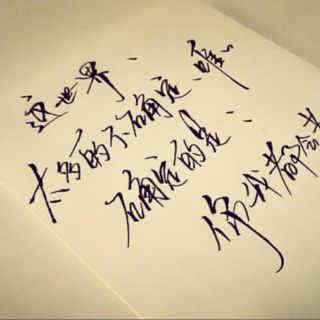 这世界、
太多的不确定、唯一
确定的是：
你我都会